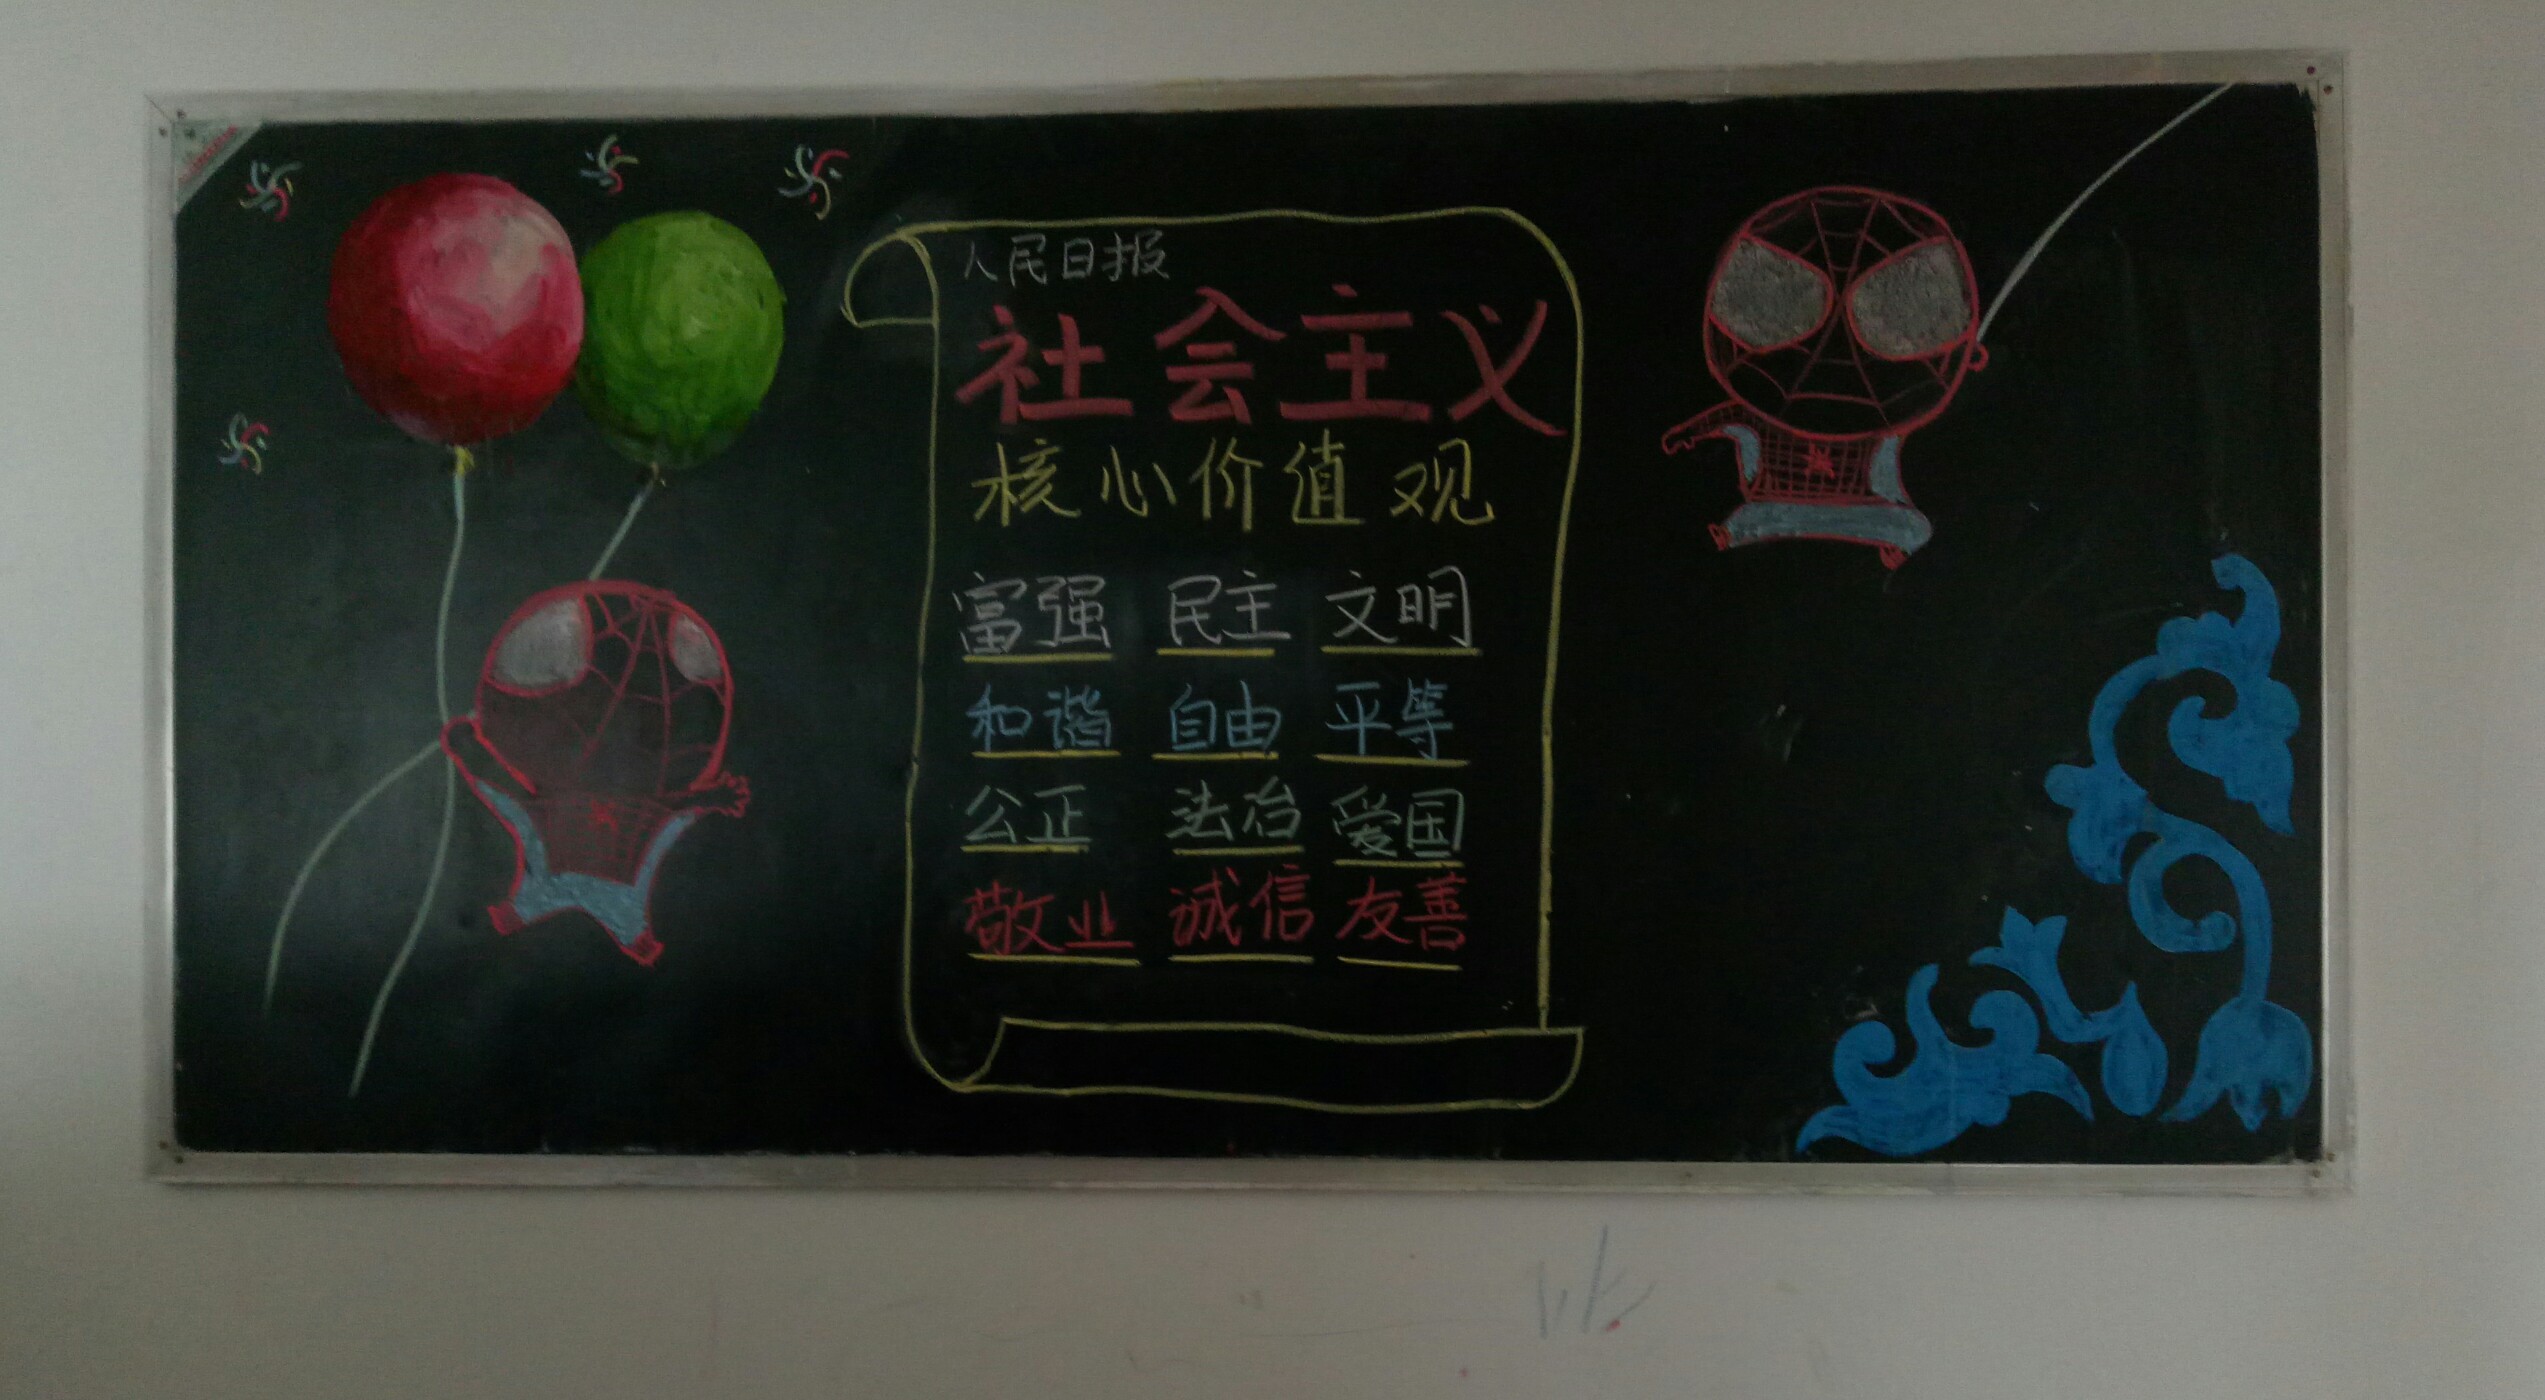 人民日报
社会主义
核心价值观
富强 民主 文明
和谐 自由 平等
公正 法治 爱国
敬业 诚信 友善